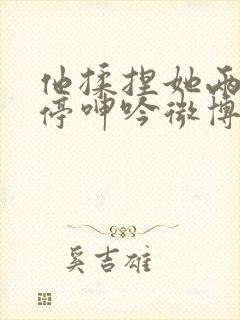 他揉捏她两
停呻吟微博
奚吉雄